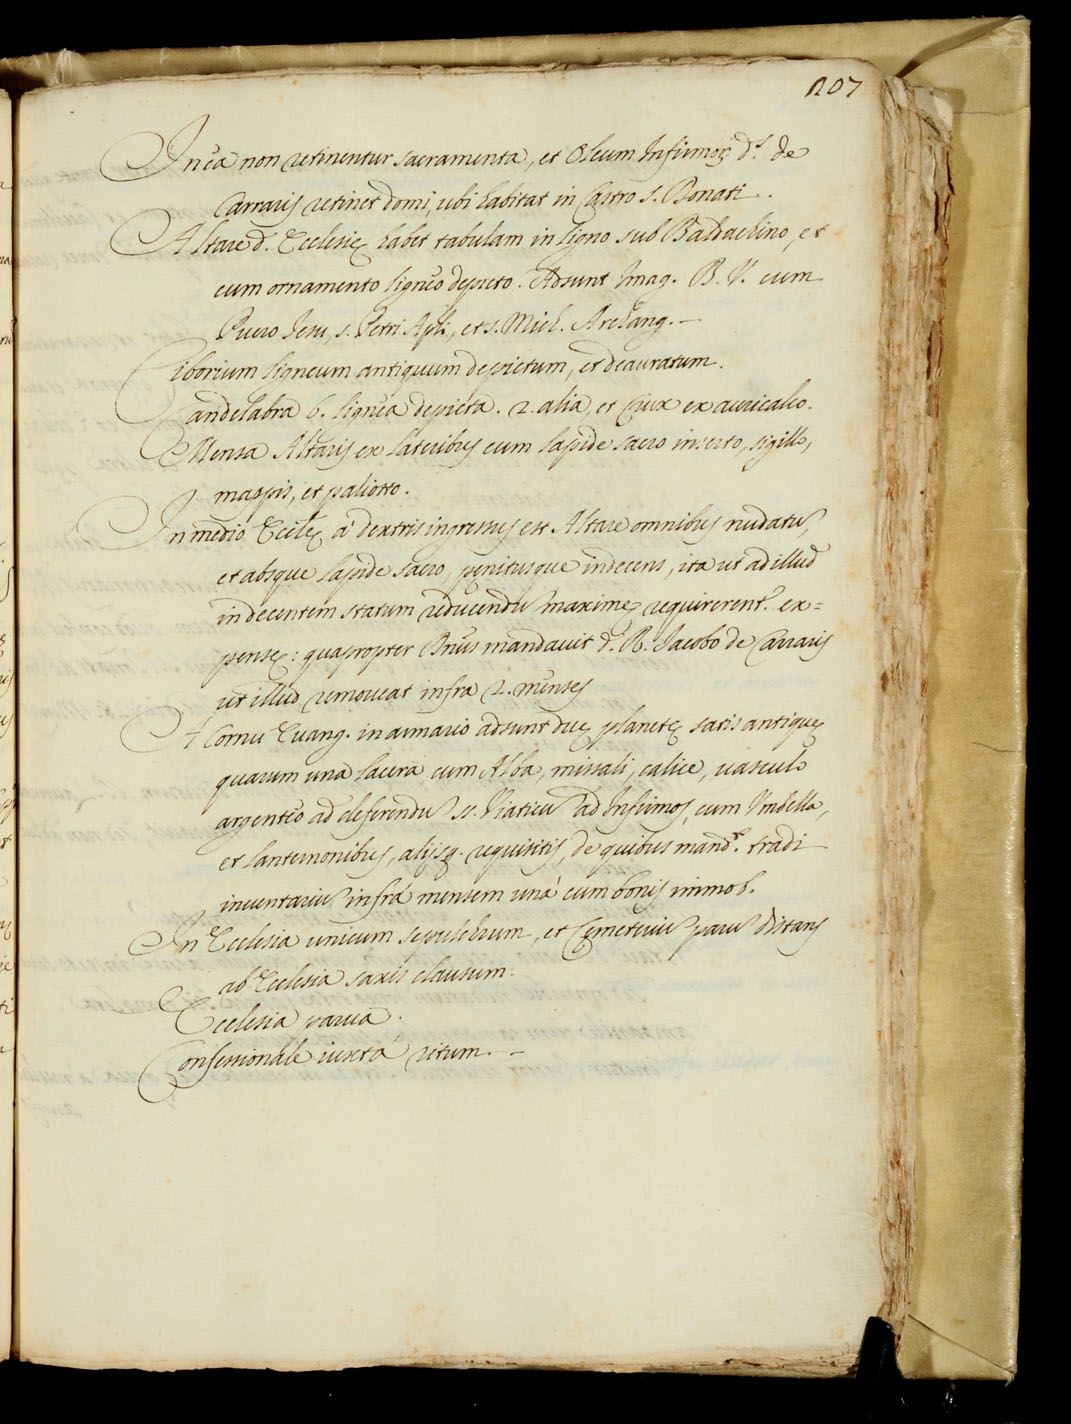 207
In ea non retinentur sacramenta, et Oleum Infirmor. d.s de
Carrarijs retinet domi, ubi habitat in Castro S. Bonati.
Altare d. Ecclesię habet tabulam in ligno sub Baldachino, et
cum ornamento ligneo depicto. Adsunt Imag. B. V. cum
Puero Jesu, s. Petri Apli, et s. Mich. Archang. –
Ciborium ligneum antiquum depictum, et deauratum.
Candelabra 6. lignea depicta. 2. alia, et Crux ex auricalco.
Mensa Altaris ex lateribus cum lapide sacro inserto, sigillo,
mappis, et paliotto.
In medio Eccłę à dextris ingressus est Altare omnibus nudatũ,
et absque lapide sacro, penitusque indecens, ita ut ad illud
in decentem statum reducendũ maximę requirerent. ex=
pensę: quapropter Dnũs mandavit d. R. Jacobo de Carrarijs
ut illud removeat infra 2. menses
A Cornu Evang. in armario adsunt duę planetę satis antiquę
quarum una lacera, cum Alba, missali, calice, vasculo
argenteo ad deferendũ ss. Viaticũ ad Infirmos, cum Umbella,
et lanternonibus, alijsq. requisitis, de quibus mand.t tradi
inventariũ infrà mensem unà cum bonis immob.
In Ecclesia unicum sepulchrum, et Cęmeteriũ parũ distans
ab Ecclesia saxis clausum.
Ecclesia parva.
Confessionale iuxtà ritum. –